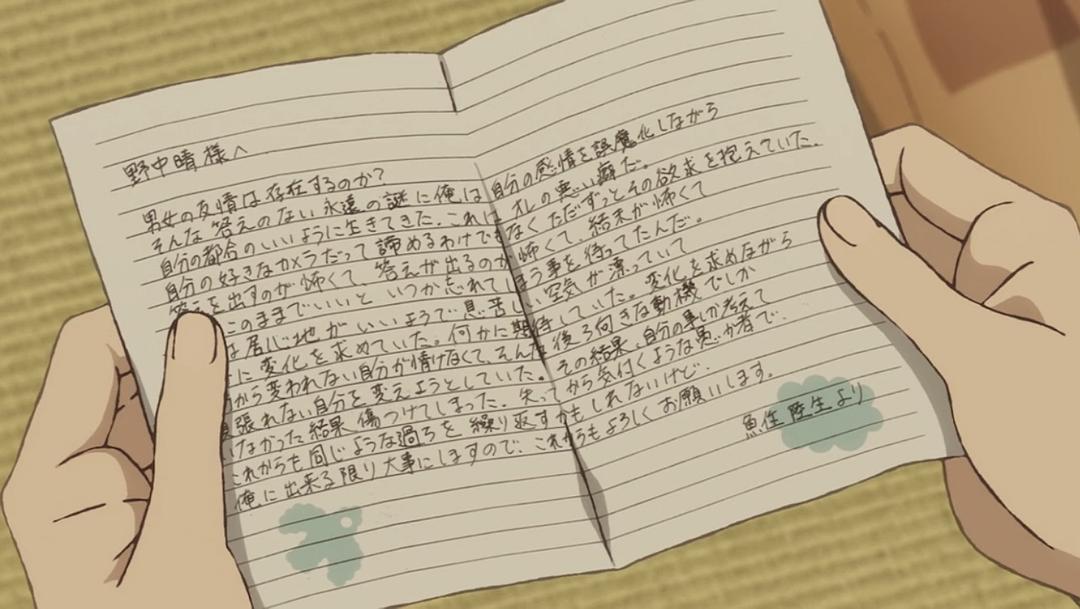 野中晴様へ
男女の友情は存在するのか?
そんな答えのない永遠の謎に俺は自分の感情を誤魔化しながら
自分の都合のいいように生きてきた。これはオレの悪い癖だ。
自分の好きなカメラだって諦めるわけでもなくただずっとその欲求を抱えていた。
答えを出すのが怖くて、答えが出るのが怖くて、結末が怖くて
このままでいいと いつか忘れてしまう事を待ってたんだ。
は居心地がいいようで息苦しい空気が漂っていて
に変化を求めていた。何かに期待していた。変化を求めながら
から変われない自分が情けなくて、そんな後ろ向きな動機でしか
張れない自分を変えようとしていた。その結果、自分の事しか考えて
いなかった結果 傷つけてしまった。失ってから気付くような愚か者で、
これからも同じような過ちを繰り返すかもしれないけど、
俺に出来る限り大事にしますので、これからもよろしくお願いします。
魚住陸生より